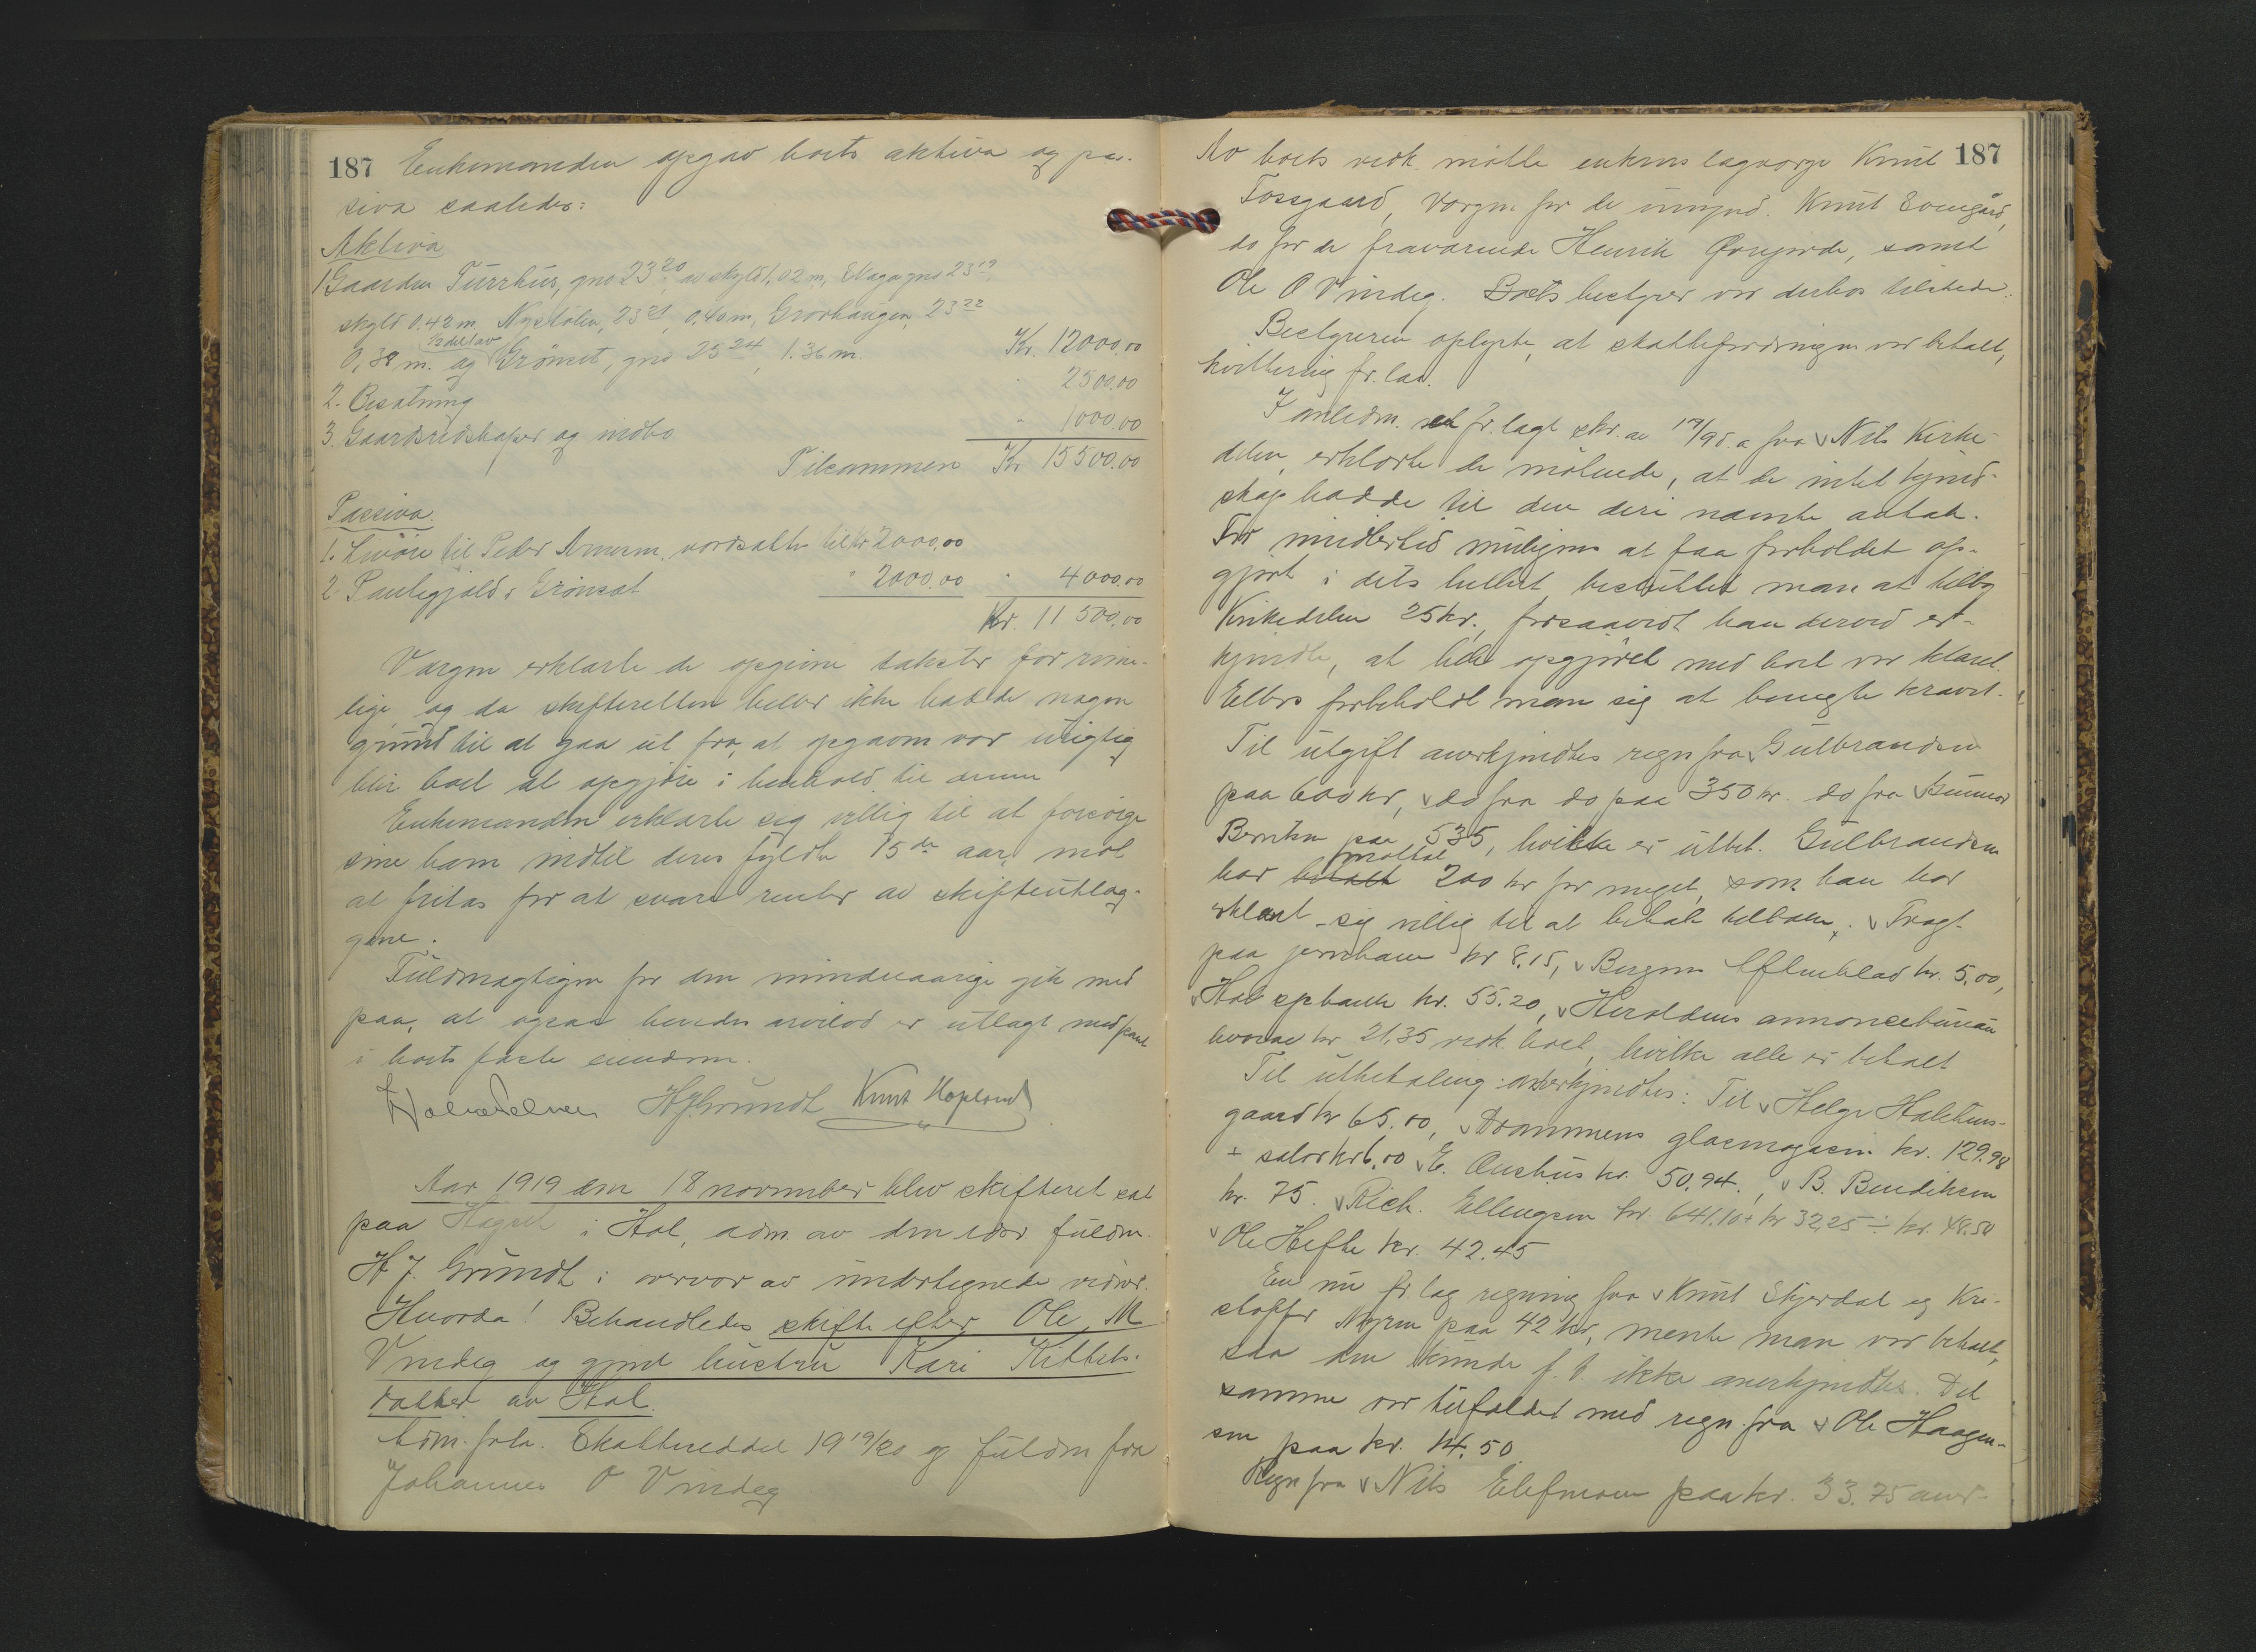 187 Enkemanden opgav boets aktiva og pas-
siva saaledes:
Aktiva
1 Gaarden Turrhus, gno 23 20, av skyld 1,02 m, Haga gno 23 19
skyld 0.42 m, Nystølen, 23 21, 0,40 m, Grovhaugen, 23 22
0,38 m. og 1/2 del av Grønset, gno 25 24, 1.36 m. Kr. 12000.00
2. Besætning " 2500.00
3. Gaardsredskaper og indbo " 1000.00
Tilsammen Kr 15500.00
Passiva.
1. Livøre til Peder , værdsatte til kr 2000,00
2. Pantegjæld i Grønset " 2000.00 " 4000.00
Kr. 11 500.00
Værgen erklærte de opgivne takster for rime-
lige, og da skifteretten heller ikke hadde nogen
grund til at gaa ut fra, at opgaven var urigtig
blir boet at opgjøre i henhold til denne
Enkemanden erklærte sig villig til at forsørge
sine barn indtil deres fyldte 15de aar, mot
at fritas for at svare renter av skifteutlæg-
gene.
Fuldmægtigen for den mindreaarige gik med
paa, at ogsaa hendes arvelod er utlagt med pant
i boets faste eiendom.
HJGrundt Knut Hopland
Aar 1919 den 18 november blev skifteret sat
paa Hagset i Hol, adm. av den edsv. fuldm.
H. J. Grundt i overvær av undertegnede vidner.
Hvorda! Behandledes skifte efter Ole M
Vindeg og gjenl. hustru Kari Kittels-
datter av Hol.
Adm. frla. Skatteseddel 1919/20 og fuldm fra
Johannes O Vindeg
187
Av boets vedk. møtte enkens lagverge Knut
Fossgaard, Værgen for de umynd. Knut Evengård,
do for de fraværende Henrik Øvregjorde, samt
Ole O Vindeg. Boets bestyrer var derhos tilstede.
Bestyreren oplyste, at skattefordringen var betalt,
kvittering fr.las.
I anledn. et fr.lagt skr. av 17/9 d.a fra Nils Kirke-
delen, erklærte de møtende, at de intet kjend-
skap hadde til den deri nævnte avtale.
For imidlertid muligens at faa forholdet op-
gjort i dets helhet besluttet man at tilby
Kirkedelen 25 kr., forsaavidt han derved er-
kjendte, at hele opgjøret med boet var klaret.
Ellers forbeholdt man sig at benegte kravet.
Til utgift anerkjendtes regn fra Gulbrandsen
paa 600 kr, do fra do paa 350 kr. do fra Gunnar
Berntsen paa 535, hvilke er utbet. Gulbrandsen
har betalt mottat 200 kr for meget, som han har
erklært sig villig til at betale tilbake. Fragt
paa jernbane kr 8.15, Bergens Aftenblad kr. 5,00,
Hol spbank kr. 55.20, Heroldens annoncebureau
hvorav kr 21.35 vedk. boet, hvilke alle er betalt
Til utbetaling anerkjendtes: Til Helge Halstens-
gaard kr 65.00, Drammens glasmagasin kr. 129.98
+ salær kr 6.00 E. kr. 50.94., B. Bendiksen
kr. 75. Rich. Ellingsen kr. 641.10 + kr 32,25 ÷ kr. 48.50
Ole Hefte kr. 42.45
En nu fr lag regning fra Knut Skjerdal og Kri-
stoffer Myren paa 42 kr, mente man var betalt,
saa den kunde f. t. ikke anerkjendtes. Det
samme var tilfældet med regn fra Ole Haagen-
sen paa kr. 14.50
Regn fra Nils Elefmoen paa kr. 33.75 aner-